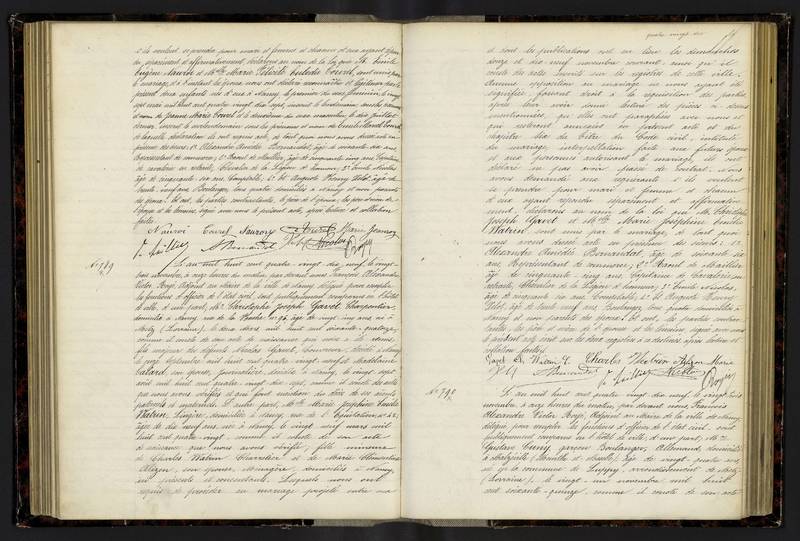 s'ils veulent se prendre pour mari et femme et chacun d'eux ayant répondu
séparément et affirmativement déclarons au nom de la loi que M. Émile
Eugène et Mlle Marie sont unis par
le mariage, et à l'instant les époux nous ont déclaré reconnaître et légitimer
deux enfants nés d'eux à Nancy le premier du sexe féminin le vingt
mai mil huit cent quatre vingt dix sept, inscrit le lendemain sous les
et nom de Jeanne Marie et le deuxième du sexe masculin, le dix juillet
dernier, inscrit le surlendemain sous les prénoms et nom de
De laquelle déclaration ils ont requis acte, ce fait pour nous avons dressé acte en
présence des sieurs 1° Alexandre Amédée Bernardat, âgé de soixante six ans,
Représentant de commerce; 2° Marc de Maillier, âgé de cinquante cinq ans, Capitaine
de cavalerie en retraite, Chevalier de la Légion d'honneur; 3° Émile Nicolas,
âgé de cinquante six ans, Comptable; 4° et Auguste Henry Hof, âgé de
trente neuf ans, Boulanger, tous quatre domiciliés à Nancy et non parents
des époux. Et ont, les parties contractantes, le père de l'époux, les père et mère de
l'épouse et les témoins, signé avec nous le présent acte, après lecture et collation
faites.
N° 789
L'an mil huit cent quatre vingt dix neuf, le vingt
trois novembre, à onze heures du matin, par devant nous François Alexandre
Victor Boyé, Adjoint au Maire de la ville de Nancy, délégué pour remplir
les fonctions d'officier de l'état civil, sont publiquement comparus en l'hôtel
de ville, d'une part, M. Christophe Joseph Gavel, Charpentier,
domicilié à Nancy, rue de la n° 96, âgé de vingt cinq ans, né à
Metz (Lorraine), le deux mars mil huit cent soixante quatorze,
comme il conste de son acte de naissance qui nous a été remis,
fils majeur des défunts Nicolas Gavel, décédé à Nancy
le onze septembre mil huit cent quatre vingt neuf, et Madeleine
son épouse, Journalière, décédée à Nancy, le vingt sept
août mil huit cent quatre vingt dix sept, comme il conste des actes
que nous avons vérifiés et qui font mention du décès de ses aïeuls
paternels et maternels. Et d'autre part, Mlle Marie Joséphine Émilie
Watrin, Lingère, domiciliée à Nancy, rue de l'Équitation, n° 42,
âgée de dix neuf ans, née à Nancy, le vingt neuf mars mil
huit cent quatre vingt, comme il conste de son acte
de naissance que nous avons vérifié, fille mineure
de Charles Watrin, Charretier et de Marie Clémentine
Alizon, son épouse, Ménagère, domiciliés à Nancy,
ici présents et consentants. Lesquels nous ont
requis de procéder au mariage projeté entre eux
quatre vingt dix
et dont les publications ont eu lieu les dimanches
douze et dix neuf novembre courant, ainsi qu'il
conste des actes inscrits sur les registres de cette ville.
Aucune opposition au mariage ne nous ayant été
signifiée, faisant droit à la réquisition des parties,
après leur avoir donné lecture des pièces ci dessus
mentionnées, qu'elles ont paraphées avec nous et
qui resteront annexées au présent acte et du
chapitre six du titre du Code civil, intitulé:
du mariage, interpellation faite aux futurs époux
et aux personnes autorisant le mariage, ils ont
déclaré ne pas avoir passé de contrat, nous
avons demandé aux requérants s'ils veulent
se prendre pour mari et femme et chacun
d'eux ayant répondu séparément et affirmative
ment, déclarons au nom de la loi que M. Christophe
Joseph Gavel et Mlle Marie Joséphine Émilie
Watrin sont unis par le mariage, ce dont pour
nous avons dressé acte en présence des sieurs: 1°
Alexandre Amédée Bernardat, âgé de soixante six
ans, Représentant de commerce; 2° Marc de Maillier,
âgé de cinquante cinq ans, Capitaine de Cavalerie en
retraite, Chevalier de la Légion d'honneur; 3° Émile Nicolas,
âgé de cinquante six ans, Comptable; 4° et Auguste Henry
Hof, âgé de trente neuf ans, Boulanger, tous quatre domiciliés à
Nancy et non parents des époux. Et ont, les parties contrac
tantes, les père et mère de l'épouse et les témoins, signé avec nous
le présent acte sur les deux registres à ce destinés, après lecture et
collation faites.
N° 790
L'an mil huit cent quatre vingt dix neuf, le vingt trois
novembre, à onze heures du matin, par devant nous, François
Alexandre Victor Boyé, Adjoint au Maire de la ville de Nancy,
délégué pour remplir les fonctions d'officier de l'état civil, sont
publiquement comparus en l'hôtel de ville, d'une part, M.
Gustave garçon Boulanger, Allemand, domicilié
à Malzéville (Meurthe et Moselle), âgé de vingt quatre ans,
né à la commune de Luppy, arrondissement de Metz
(Lorraine), le vingt un novembre mil huit
cent soixante quinze, comme il conste de son acte